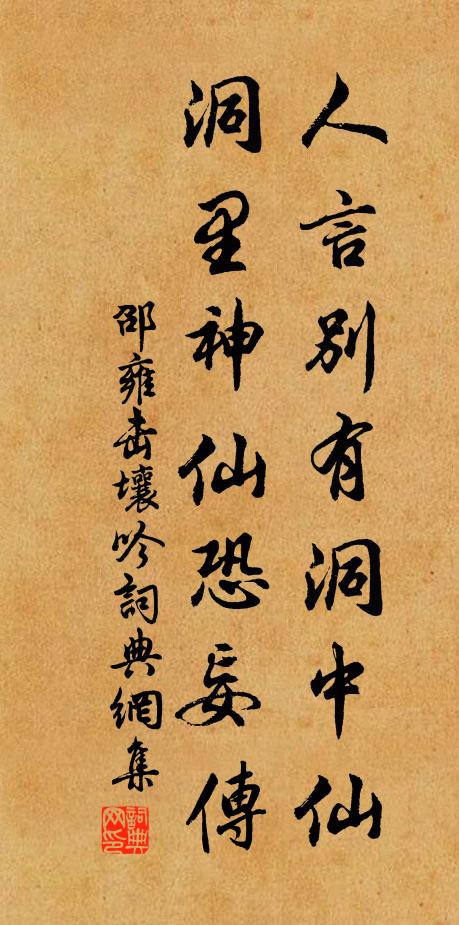 人言别有洞中仙
洞里神仙恐妄傳
邵雍击壤吟詞典網集
詞典网印